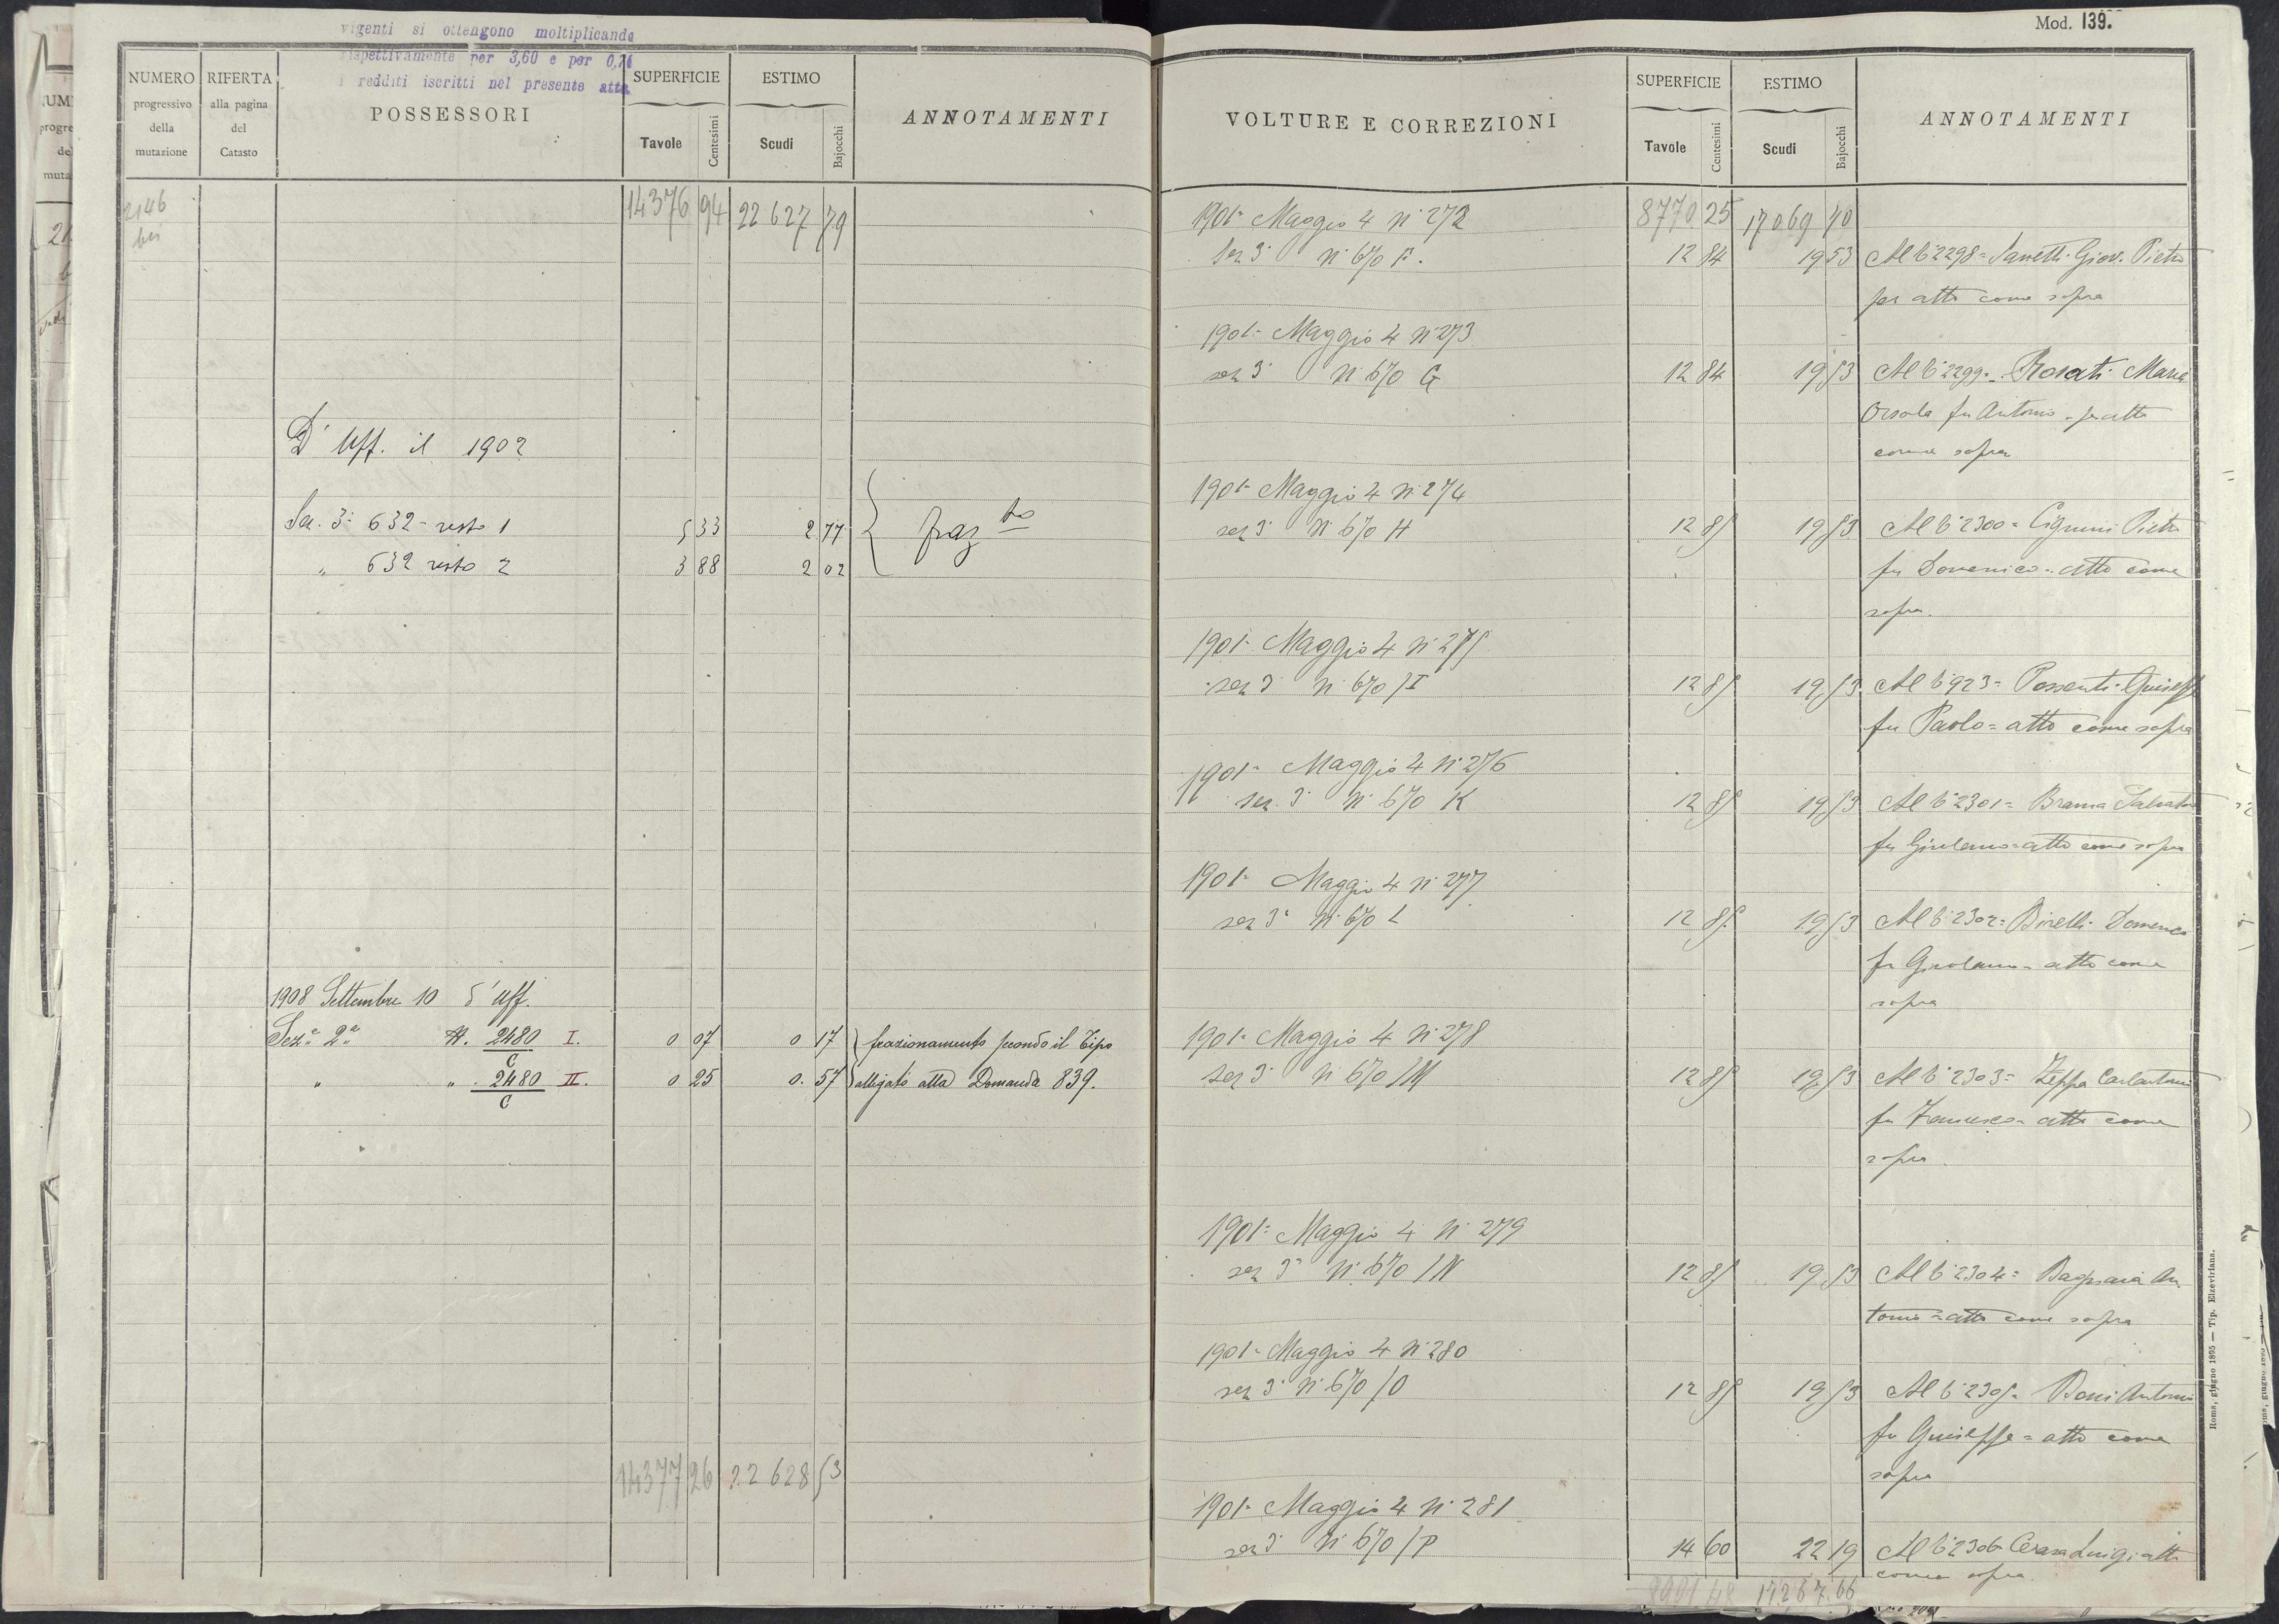 vigenti si ottengono moltiplicando
rispettivamente per 3,60 e per 0,71
i redditi iscritti nel presente atto
NUMERO progressivo della mutazione
RIFERTA alla pagina del Catasto
POSSESSORI
SUPERFICIE Tavole Centesimi
ESTIMO Scudi Bajocchi
ANNOTAMENTI
2146 14376 94 22627 79
bis
D' Uff. il 1902
Sez. 3ª 632 - resto 1 5 33 2 77
" 632 resto 2 3 88 2 02
fraz to
1908 Settembre 10 d'Uff.
Sez.e 2a N. 2480/C I. 0 07 0 17 frazionamento secondo il Tipo
" " 2480/C II. 0 25 0. 57 alligato alla Domanda 839.
14377 26 22628 53
Mod. 139.
VOLTURE E CORREZIONI
SUPERFICIE Tavole Centesimi
ESTIMO Scudi Bajocchi
ANNOTAMENTI
1901= Maggio 4 N° 272 8770 25 17069 70
Sez 3ª N° 670 F. 12 84 19 53 Al b° 2298= Giov. Pietro
per atto come sopra
1901= Maggio 4 N° 273
sez 3ª N° 670 G 12 84 19 53 Al b° 2299= Rosati Maria
Orsola fu Antonio = per atto
come sopra
1901= Maggio 4 N° 274
sez 3ª N° 670 H 12 85 19 53 Al b° 2300= Pietro
fu Domenico = atto come
sopra.
1901= Maggio 4 N° 275
sez 3ª N° 670/I 12 85 19 53 Al b° 923= Possenti Giuseppe
fu Paolo= atto come sopra
1901= Maggio 4 N° 276
sez. 3ª N° 670 K 12 85 19 53 Al b° 2301= Salvatore
fu Girolamo= atto come sopra
1901= Maggio 4 N° 277
sez 3ª N° 670 L 12 85 19 53 Al b° 2302= Domenico
fu Girolamo= atto come
sopra
1901= Maggio 4 N° 278
Sez 3ª N° 670/M 12 85 19 53 Al b° 2303= Zeppa Carlantonio
fu Francesco= atto come
sopra.
1901= Maggio 4 N° 279
sez 3ª N° 670/N 12 85 19 53 Al b° 2304= Bagnaia An
tonio= atto come sopra
1901= Maggio 4 N° 280
sez 3ª N° 670/O 12 85 19 53 Al b° 2305= Boni Antonio
fu Giuseppe= atto come
sopra
1901= Maggio 4 N° 281
sez 3ª N° 670/P 14 60 22 19 Al b° 2306= Luigi atto
come sopra.
17267.66
Roma, giugno 1895 — Tip. Elzeviriana.